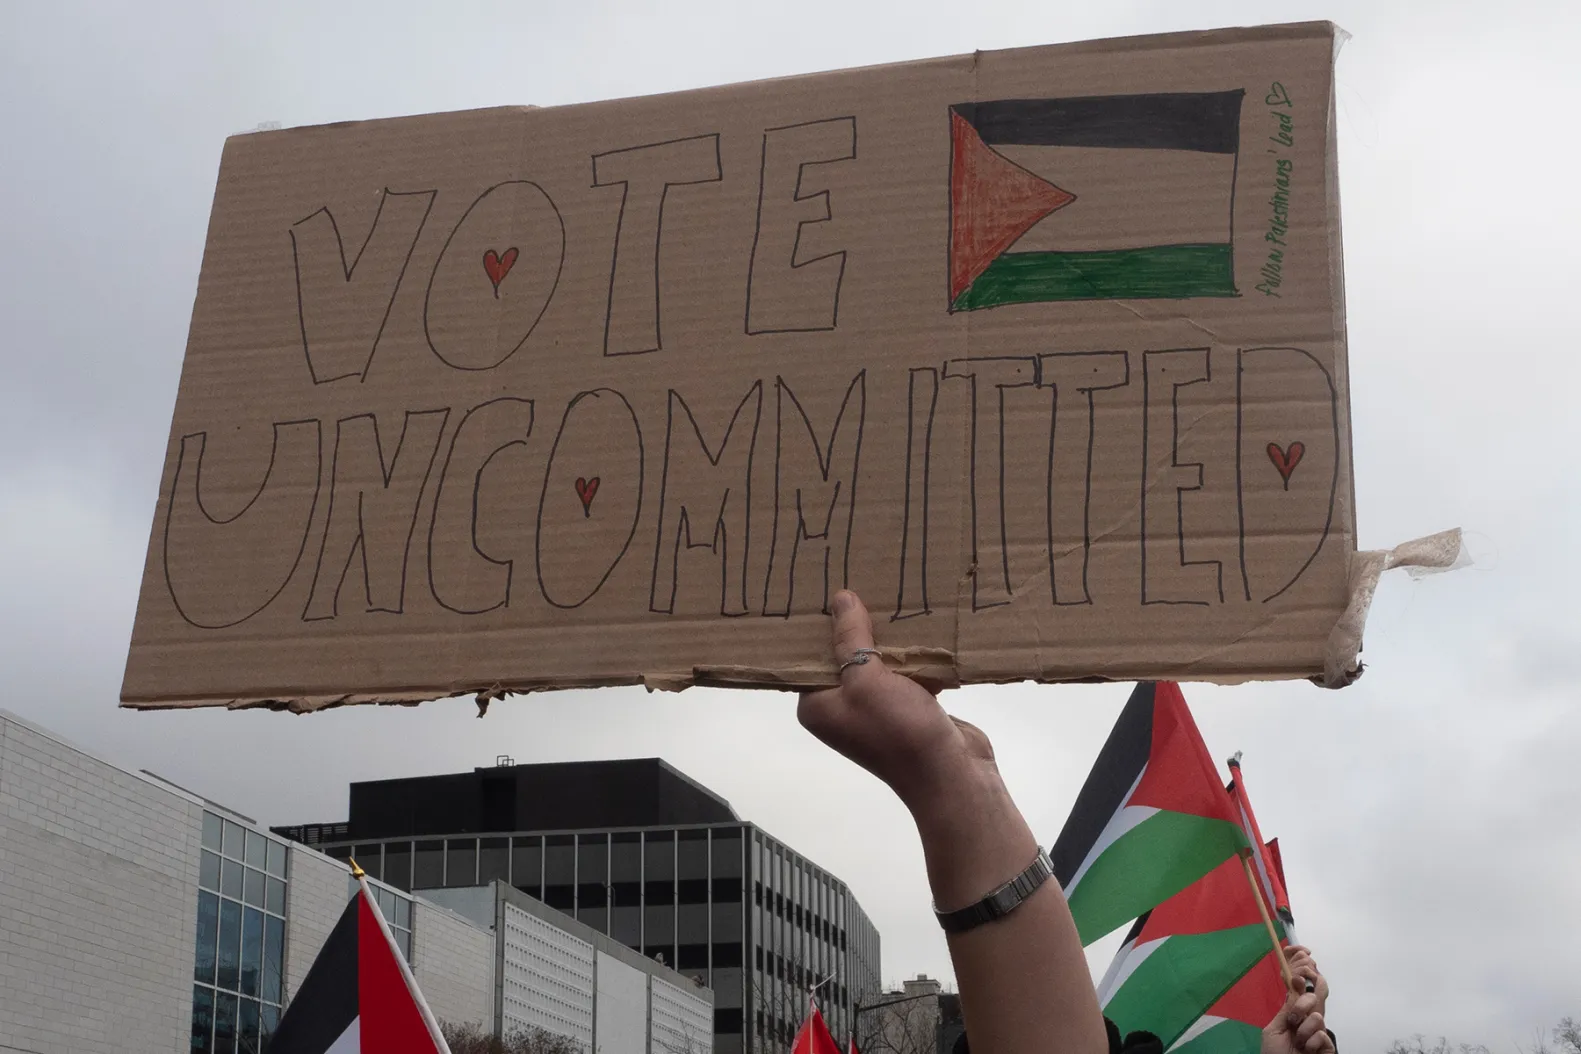 VOTE
UNCOMMITTED
follow Palestinians' lead